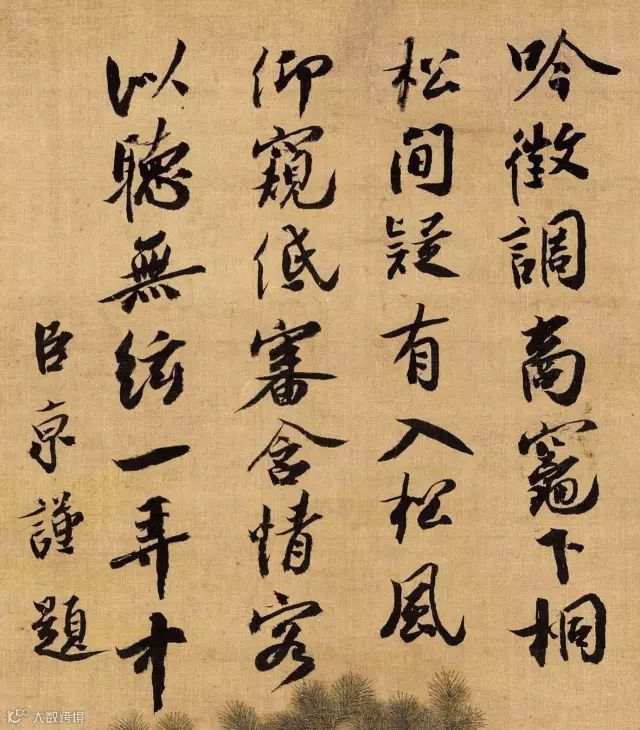 吟徵調商竈下桐
松間疑有入松風
仰窺低審含情客
似聽無絃一弄中
臣京謹題
大数跨境